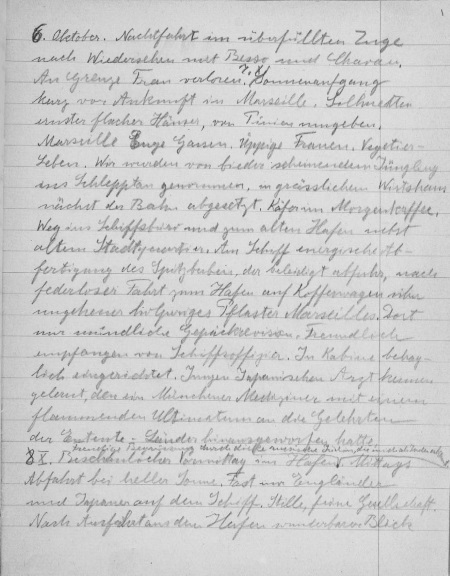 6. Oktober. Nachtfahrt im überfüllten Zuge
nach Wiedersehen mit Besso und Chavan.
An Grenze Frau verloren. 7. X. Sonnenaufgang
kurz vor Ankunft in Marseille. Silhouetten
ernster flacher Häuser, von Pinien umgeben.
Marseille Enge Gassen. Üppige Frauen. Vegetier-
Leben. Wir wurden von bieder scheinendem Jüngling
ins Schlepptau genommen, in grässlichem Wirtshaus
nächst der Bahn abgesetzt. Käfer im Morgenkaffee.
Weg ins Schiffsbüro und zum alten Hafen nebst
altem Stadtquartier. Am Schiff energische Ab-
fertigung des Spitzbuben, der beleidigt abfuhr, nach
federloser Fahrt zum Hafen auf Kofferwagen über
ungeheuer holpriges Pflaster Marseilles. Dort
nur mündliche Gepäckrevision. Freundlich
empfangen von Schiffsoffizier. In Kabine behag-
lich eingerichtet. Jungen Japanischen Arzt kennen
gelernt, den ein Münchener Mediziner mit einem
flammenden Ultimatum an die Gelehrten
der Entente-Länder hinausgeworfen hatte.
8 X. Beschaulicher Vormittag im Hafen. Mittags
Abfahrt bei heller Sonne. Fast nur Engländer
und Japaner auf dem Schiff. Stille, feine Gesellschaft.
Nach Ausfahrt aus dem Hafen wunderbarer Blick